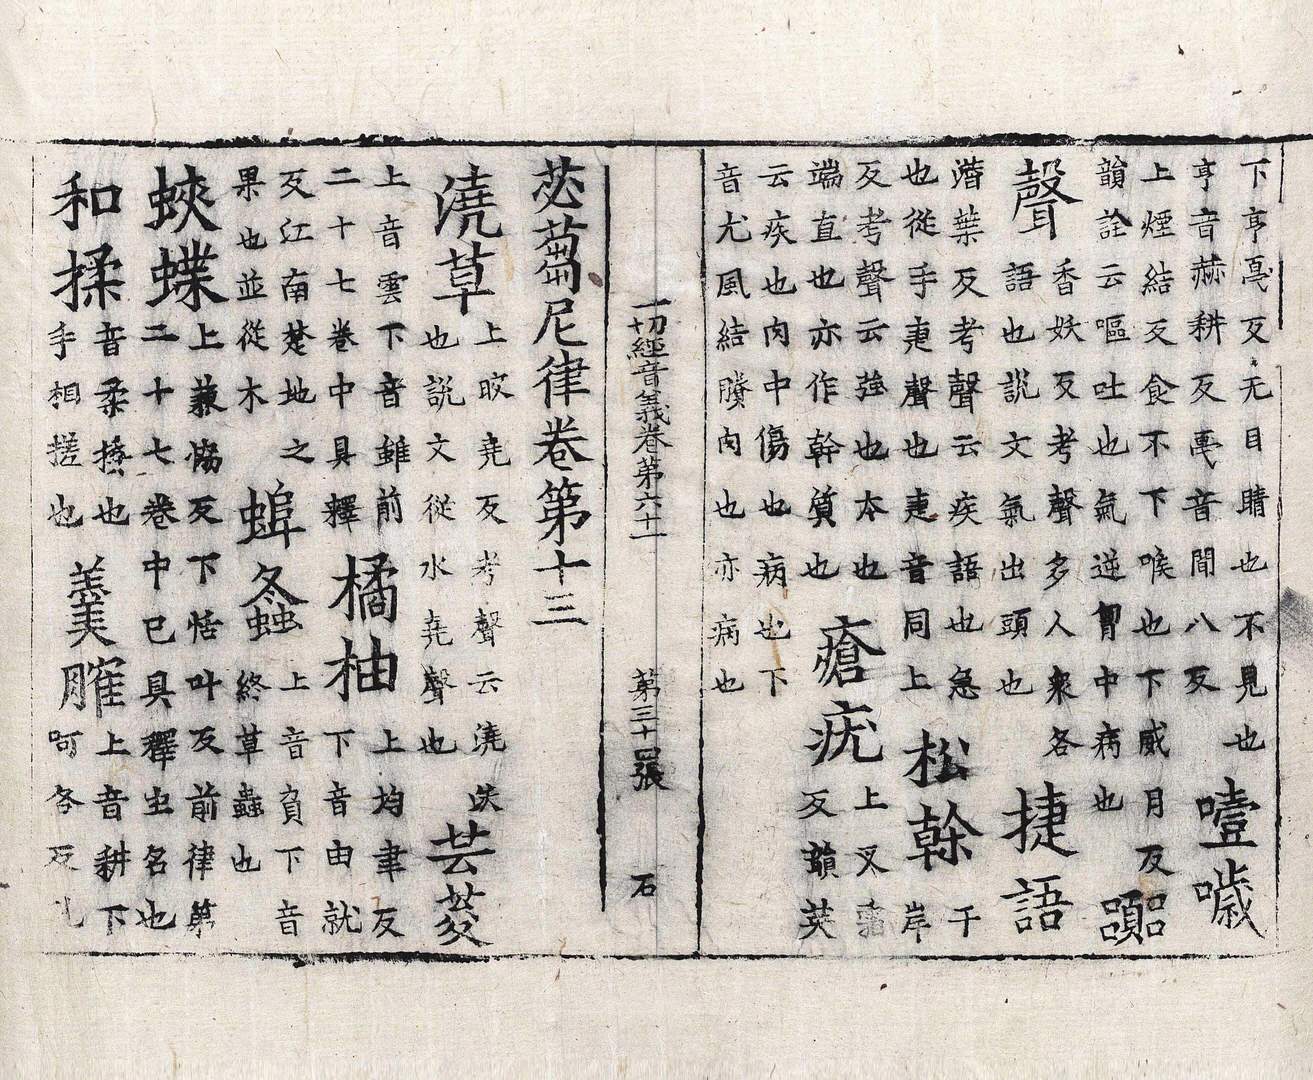 下亨戞反无目睛也不見也
亨音赫耕反戞音間八反
噎噦
上煙結反食不下喉也下威月反
韻詮云嘔吐也氣逆胷中病也
嚻
聲
香妖反考聲多人衆各
語也說文氣出頭也
捷語
潛葉反考聲云疾語也急
也從手疌聲也疌音同上
松榦
干
岸
反考聲云強也本也
端直也亦作幹質也
瘡疣
上叉霜
反韻英
云疾也肉中傷也病也下
音尤風結賸肉也亦病也
一切經音義卷第六十一 第三十四張 石
苾蒭尼律卷第十三
澆草
上晈堯反考聲云澆沃
也說文從水堯聲也
芸荾
上音雲下音雖前
二十七卷中具釋
橘柚
上均聿反
下音由就
反江南楚地之
果也並從木
蛗螽
上音負下音
終草蟲也
蛺蝶
上兼協反下恬叶反前律第
二十七卷中已具釋虫名也
和揉
音柔捼也
手相搓也
羹臛
上音耕下
呵各反